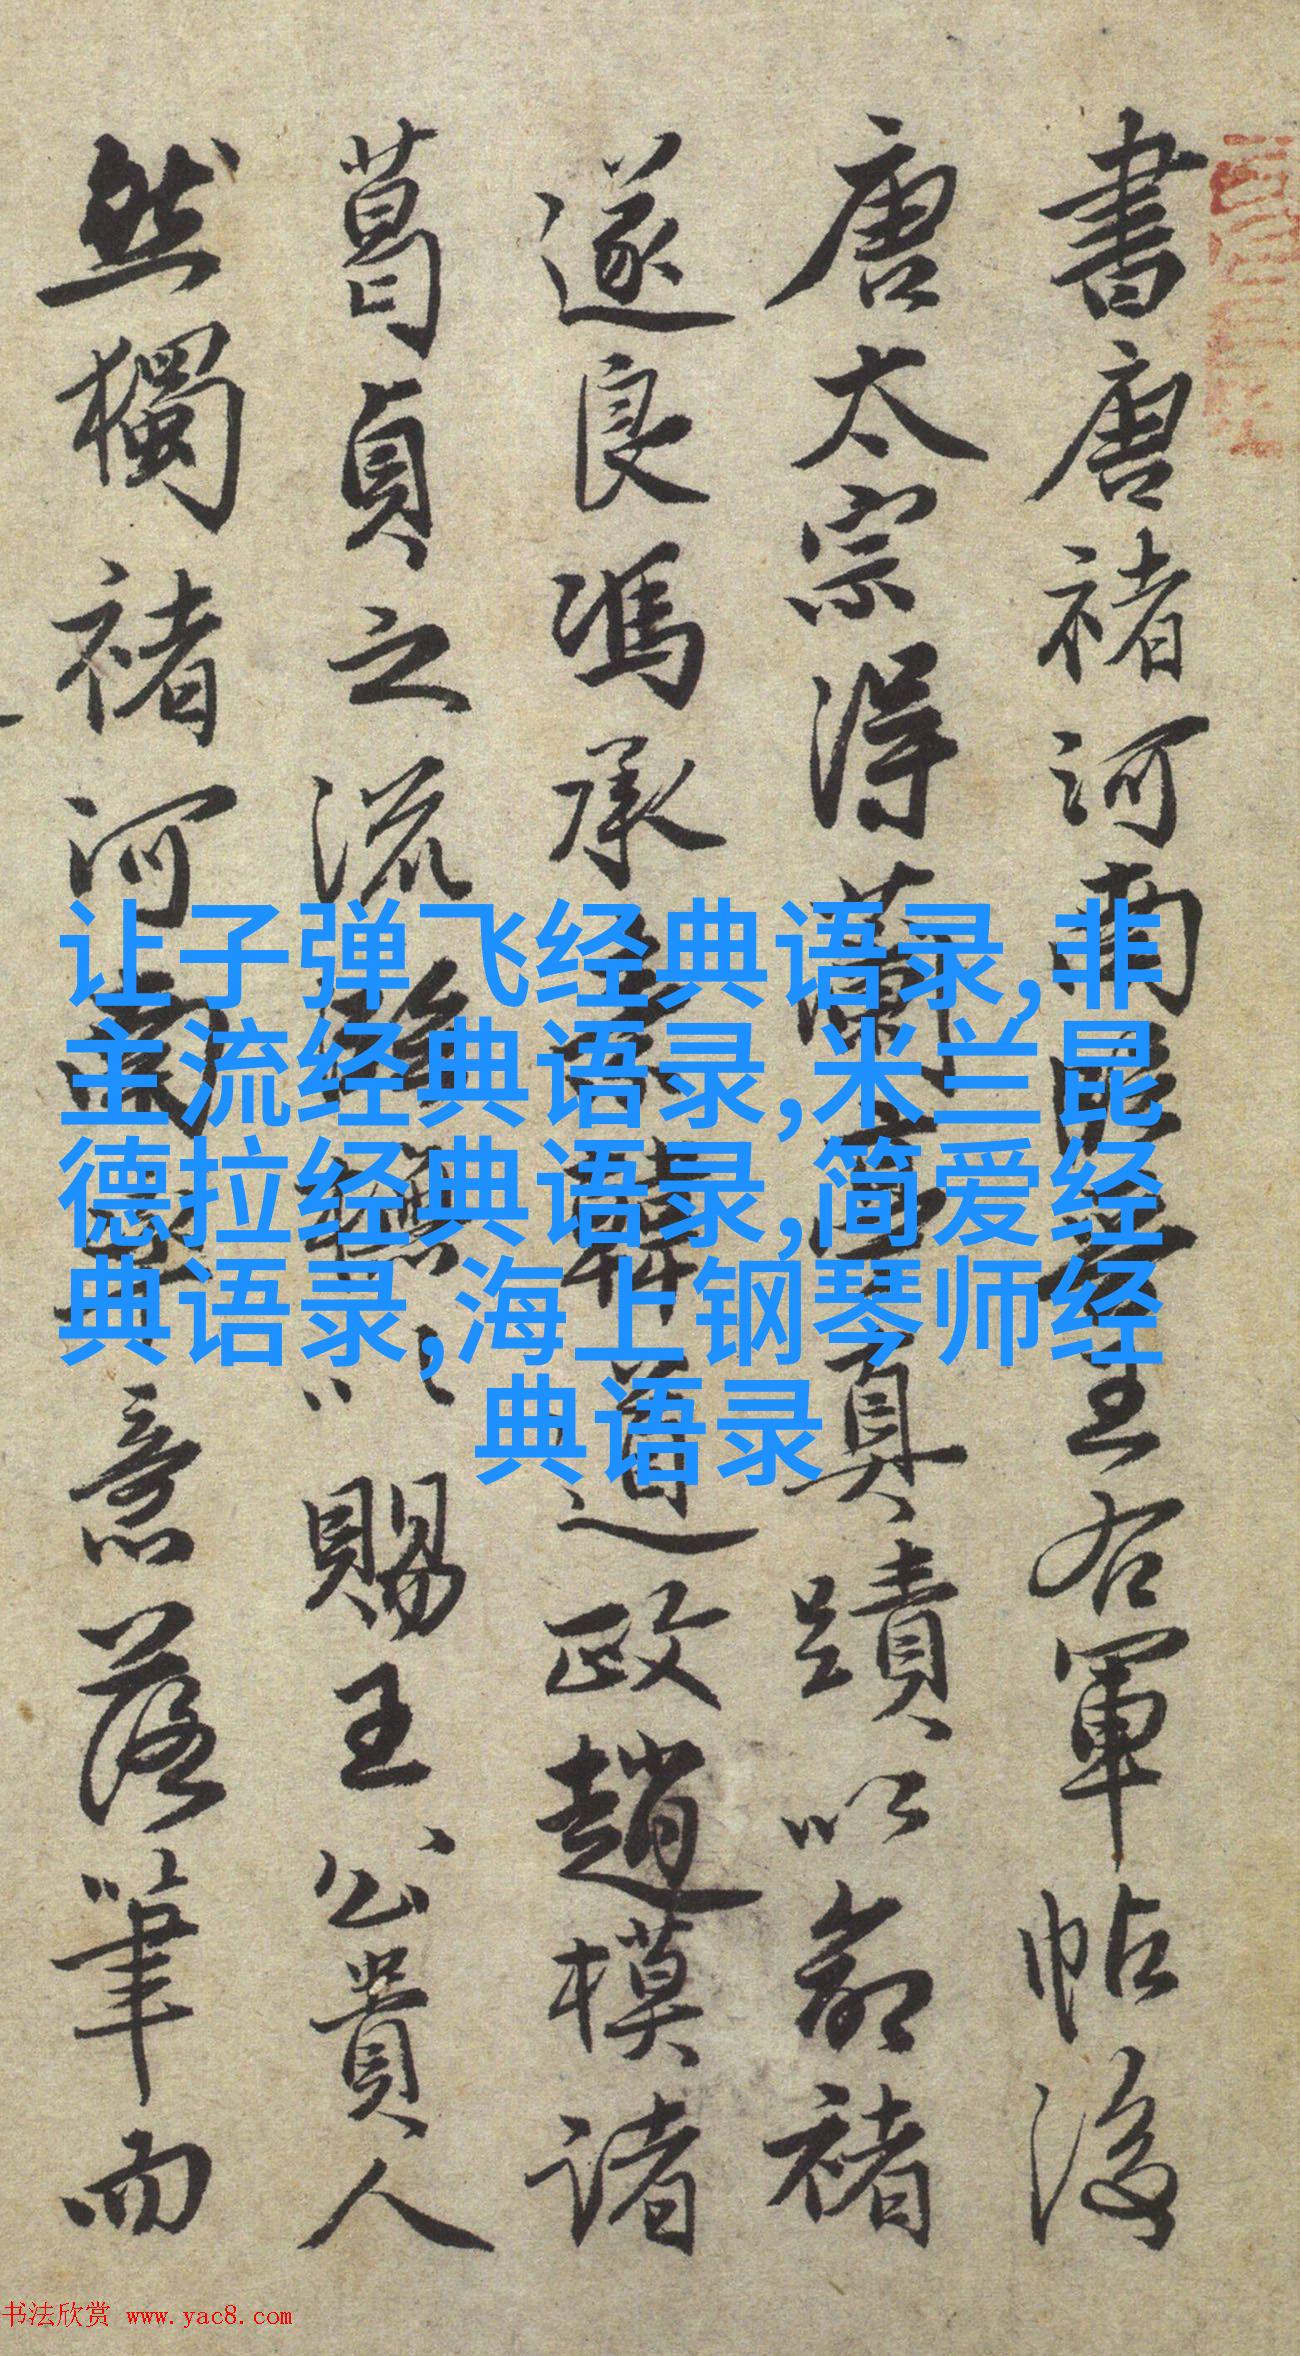 让子弹飞经典语录,非
主流经典语录,米兰昆
德拉经典语录,简爱经
典语录,海上钢琴师经
典语录
書唐褚河南臨王右軍帖後
唐太宗得蘭亭真蹟以命褚
遂良馮承素韓道政趙模諸
葛貞之流以賜王公貴人
然獨褚河南意落筆而
书法欣赏 www.yac8.com